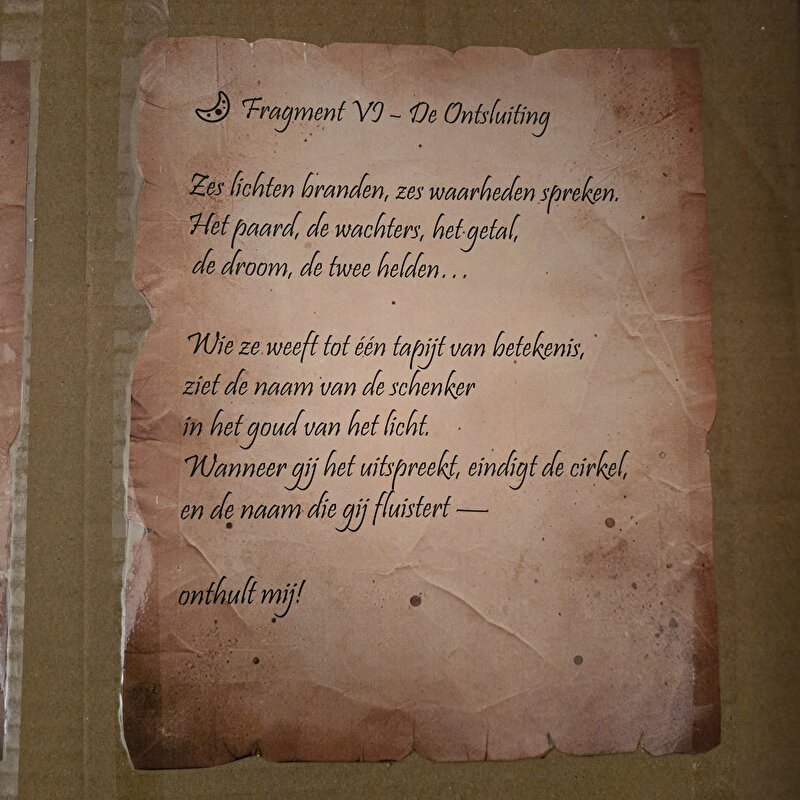 Fragment VI – De Ontsluiting
Zes lichten branden, zes waarheden spreken.
Het paard, de wachters, het getal,
de droom, de twee helden...
Wie ze weeft tot één tapijt van betekenis,
ziet de naam van de schenker
in het goud van het licht.
Wanneer gij het uitspreekt, eindigt de cirkel,
en de naam die gij fluistert —
onthult mij!